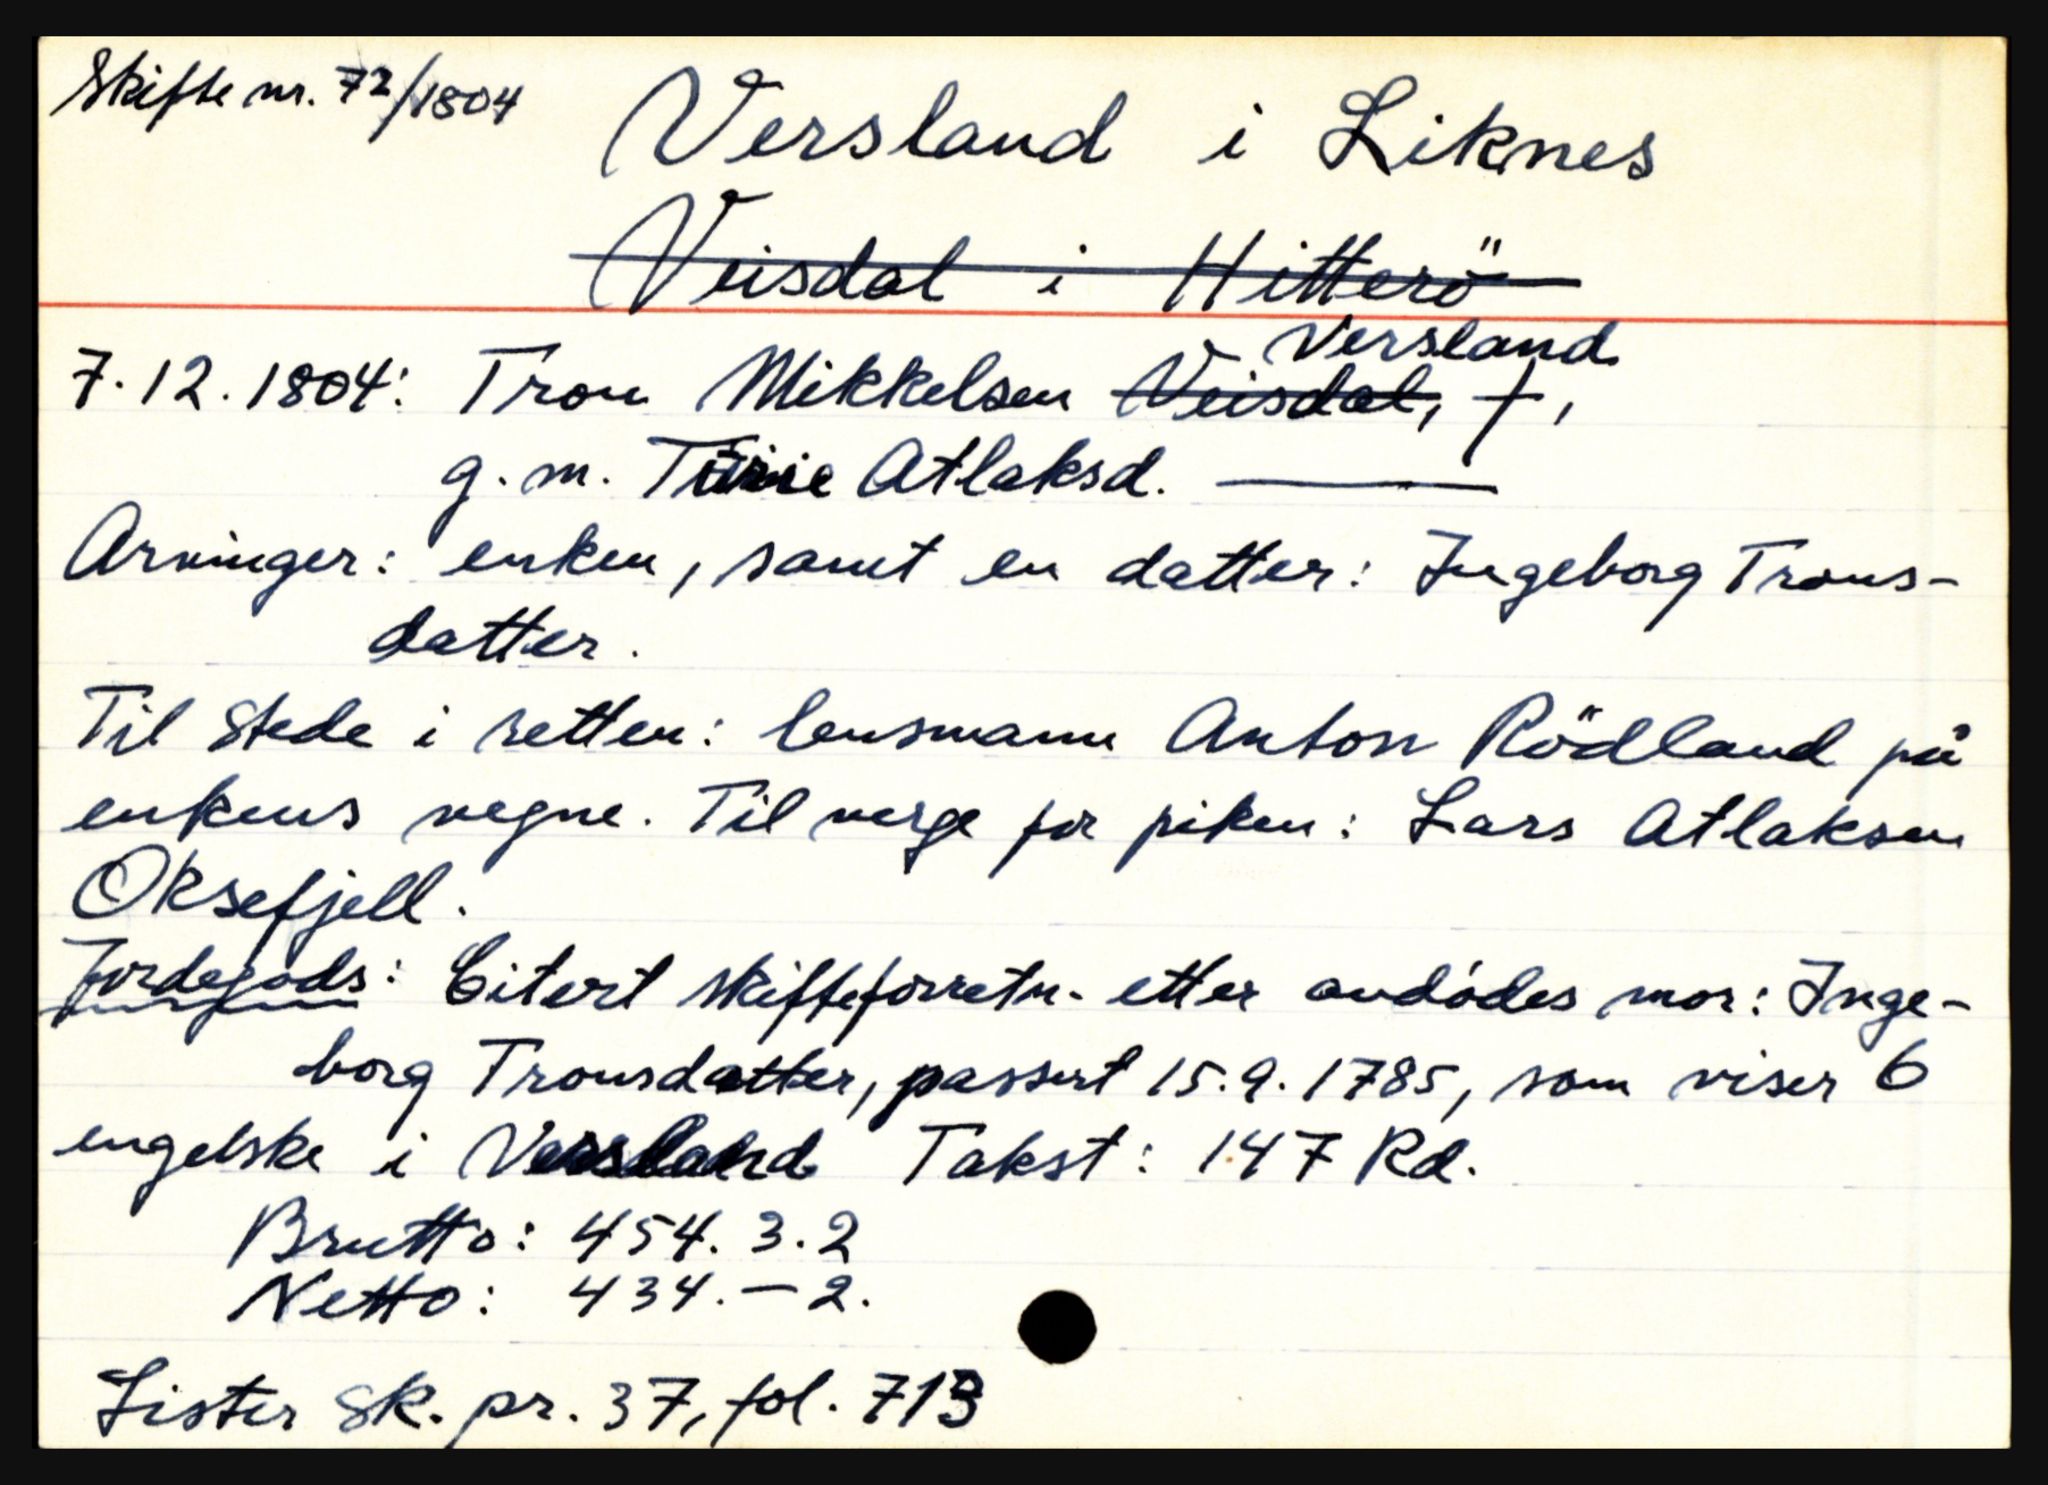 Skifte nr. 72/1804
Versland i Liknes
Veisdal i Hitterö
Versland
7.12.1804: Tron Mikkelsen Veisdal, †,
g. m. Atlaksd. ———
Arvinger: enken, samt en datter: Ingeborg Trons-
datter.
Til stede i retten: lensmann Anton Rödland på
enkens vegne. Til verge for piken: Lars Atlaksen
Oksefjell.
Jordegods: Citert skifteforretn. etter avdödes mor: Inge-
borg Tronsdatter, passert 15.9.1785, som viser 6
engelske i Versland Takst: 147 Rd.
Brutto: 454. 3. 2
Netto: 434. — 2.
Lister Sk. pr. 37, fol. 713